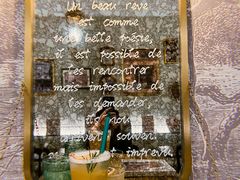 Un beau rêve
est comme
une belle poésie,
il est possible de
les rencontrer
mais impossible de
les demander,
ils nous
arrivent souvent
imprévu